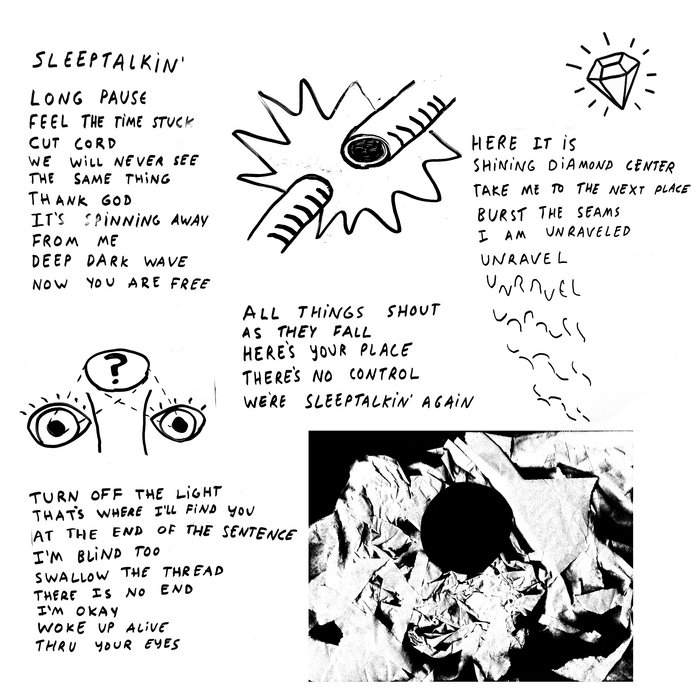 SLEEPTALKIN'
LONG PAUSE
FEEL THE TIME STUCK
CUT CORD
WE WILL NEVER SEE
THE SAME THING
THANK GOD
IT'S SPINNING AWAY
FROM ME
DEEP DARK WAVE
NOW YOU ARE FREE
?
TURN OFF THE LIGHT
THAT'S WHERE I'LL FIND YOU
AT THE END OF THE SENTENCE
I'M BLIND TOO
SWALLOW THE THREAD
THERE IS NO END
I'M OKAY
WOKE UP ALIVE
THRU YOUR EYES
ALL THINGS SHOUT
AS THEY FALL
HERE'S YOUR PLACE
THERE'S NO CONTROL
WE'RE SLEEPTALKIN' AGAIN
HERE IT IS
SHINING DIAMOND CENTER
TAKE ME TO THE NEXT PLACE
BURST THE SEAMS
I AM UNRAVELED
UNRAVEL
UNRAVEL